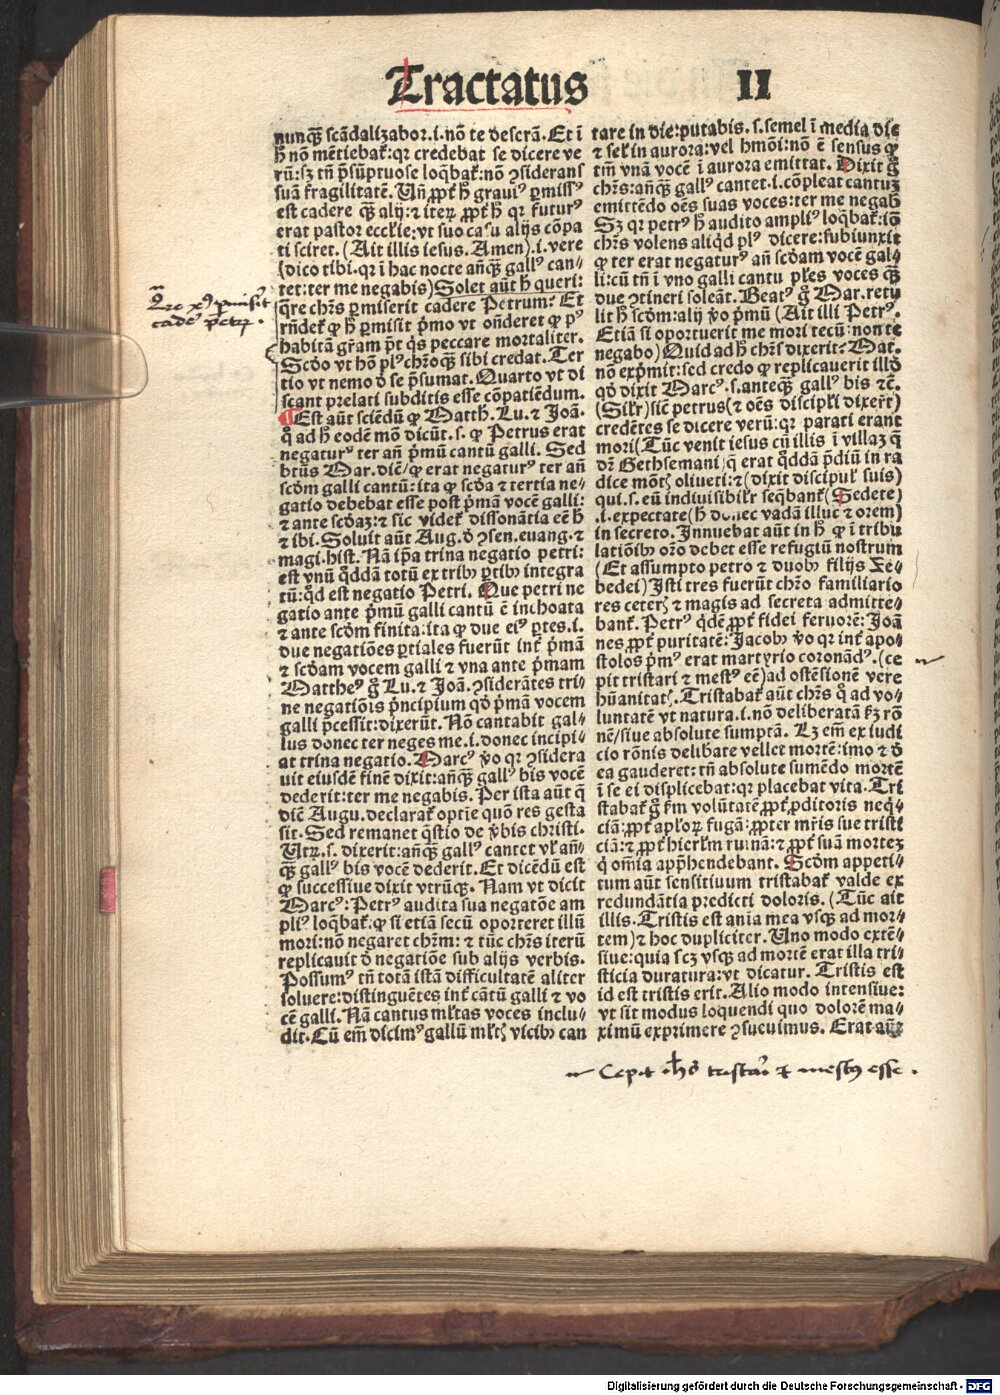 Tractatus II
nunqȝ scādalizabor.i.nō te deserā.Et ī
h̄ nō mētiebat̄:qr credebat se dicere ve
rū:sȝ tn̄ p̄sūptuose loq̄bat̄:nō ꝯsiderans
suā fragilitatē. Un̄ ꝓpt̄ h̄ grauiꝰ ꝑmissꝰ
est cadere qȝ alij:⁊ iteꝝ ꝓpt̄ h̄ qr futurꝰ
erat pastor eccl̄ie:vt suo casu alijs cōpa
ti sciret. (Ait illis iesus. Amen).i.vere
(dico tibi.qr i hac nocte an̄qȝ gallꝰ can⸗
tet:ter me negabis) Solet aūt h̄ queri:
q̄re chr̄s ꝑmiserit cadere Petrum? Et
rn̄det̄ ꝙ h̄ ꝑmisit p̄mo vt on̄deret ꝙ pꝰ
habitā gr̄am p̄t q̄s peccare mortaliter.
Scd̄o vt hō plꝰ chr̄o qȝ sibi credat. Ter
tio vt nemo d̄ se p̄sumat. Quarto vt di
scant prelati subditis esse cōpatiēdum.
¶ Est aūt sciēdū ꝙ Matth. Lu. ⁊ Joā.
q̊ ad h̄ eodē mō dicūt. s. ꝙ Petrus erat
negaturꝰ ter an̄ p̄mū cantū galli. Sed
btūs Mar. dic̄ ꝙ erat negaturꝰ ter an̄
scd̄m galli cantū: ita ꝙ scd̄a ⁊ tertia ne⸗
gatio debebat esse post p̄mā vocē galli:
⁊ ante scd̄aȝ:⁊ sic videt̄ dissonātia eē h̄
⁊ ibi. Soluit aūt Aug. d̄ ꝯsen. euang. ⁊
magi.hist. Nā ip̄a trina negatio petri:
est vnū q̊ddā totū ex tribꝰ ꝑtibꝰ integra
tū:qd̄ est negatio Petri. Que petri ne
gatio ante p̄mū galli cantū ē inchoata
⁊ ante scd̄m finita:ita ꝙ due eiꝰ ꝑtes.i.
due negatiōes ꝑtiales fuerūt int̄ p̄mā
⁊ scd̄am vocem galli ⁊ vna ante p̄mam
Mattheꝰ g̊ Lu. ⁊ Joā. ꝯsiderātes tri⸗
ne negatiōis p̄ncipium qd̄ p̄mā vocem
galli p̄cessit:dixerūt. Nō cantabit gal⸗
lus donec ter neges me.i.donec incipi⸗
at trina negatio. Marcꝰ v̄o qr ꝯsidera
uit eiusdē finē dixit:an̄qȝ gallꝰ bis vocē
dederit:ter me negabis. Per ista aūt q̄
dic̄ Augu. declarat̄ optīe quō res gesta
sit. Sed remanet q̄stio de v̄bis christi.
Utꝝ.s. dixerit:an̄qȝ gallꝰ cantet vl̄ an̄⸗
qȝ gallꝰ bis vocē dederit. Et dicēdū est
ꝙ successiue dixit vtrūqȝ. Nam vt dicit
Marcꝰ: Petrꝰ audita sua negatōe am
pliꝰ loq̄bat̄:ꝙ si etiā secū oporteret illū
mori:nō negaret chr̄m: ⁊ tūc chr̄s iterū
replicauit d̄ negatiōe sub alijs verbis.
Possumꝰ tn̄ totā istā difficultatē aliter
soluere:distinguētes int̄ cātū galli ⁊ vo
cē galli. Nā cantus ml̄tas voces inclu⸗
dit. Cū em̄ dicimꝰ gallū ml̄tꝭ vicibꝰ can
tare in die:putabis.s.semel ī media die
⁊ sel̄ in aurora:vel hmōi:nō ē sensus ꝙ
tm̄ vnā vocē i aurora emittat. Dixit g̊
chr̄s:an̄qȝ gallꝰ cantet.i.cōpleat cantuȝ
emittēdo oēs suas voces:ter me negab̄
Sȝ qr petrꝰ h̄ audito ampliꝰ loq̄bat̄:iō
chr̄s volens aliqd̄ plꝰ dicere:subiunxit
ꝙ ter erat negaturꝰ an̄ scd̄am vocē gal⸗
li:cū tn̄ i vno galli cantu pl̄es voces qȝ
due ꝯtineri soleāt. Beatꝰ g̊ Mar. retu
lit h̄ scd̄m:alij v̄o p̄mū (Ait illi Petrꝰ.
Etiā si oportuerit me mori tecū:non te
negabo) Quid ad h̄ chr̄s dixerit? Mat.
nō exp̄mit:sed credo ꝙ replicauerit illd̄
qd̄ dixit Marcꝰ.s.anteqȝ gallꝰ bis ⁊c̄.
(Sil̄r) sic̄ petrus (⁊ oēs discipl̄i dixer̄t)
credētes se dicere verū:qr parati erant
mori (Tūc venit iesus cū illis i villaȝ q̄
dr̄ Gethsemani) q̄ erat q̊ddā p̄diū in ra
dice mōtꝭ oliueti:⁊ (dixit discipul̄ suis)
qui.s.eū indiuisibilr̄ seq̄bant̄ (Sedete)
.i.expectate (h̄ donec vadā illuc ⁊ orem)
in secreto. Innuebat aūt in h̄ ꝙ i tribu
latiōibꝰ or̄o debet esse refugiū nostrum
(Et assumpto petro ⁊ duobꝰ filijs Ȝe⸗
bedei) Isti tres fuerūt chr̄o familiario
res ceterꝭ ⁊ magis ad secreta admitte⸗
bant̄. Petrꝰ q̄dē ꝓpt̄ fidei feruorē: Joā
nes ꝓpt̄ puritatē: Jacobꝰ v̄o qr int̄ apo⸗
stolos p̄mꝰ erat martyrio coronādꝰ.(ce
pit tristari ⁊ mestꝰ eē) ad ostēsionē vere
hūanitatꝭ. Tristabat̄ aūt chr̄s q̊ ad vo⸗
luntatē vt natura.i.nō deliberatā sȝ rō
nē/siue absolute sumptā. Lȝ em̄ ex iudi
cio rōnis delibate vellet mortē:imo ⁊ d̄
ea gauderet: tn̄ absolute sumēdo mortē
i se ei displicebat:qr placebat vita. Tri
stabat̄ g̊ sm̄ volūtatē ꝓpt̄ ꝓditoris neq̄⸗
ciā:ꝓpt̄ apl̄oꝝ fugā:ꝓpter mr̄is sue tristi
ciā:⁊ ꝓpt̄ hierl̄m ruinā:⁊ ꝓpt̄ suā morteȝ
q̊ om̄ia app̄hendebant. Scd̄m appeti⸗
tum aūt sensitiuum tristabat̄ valde ex
redundātia predicti doloris. (Tūc ait
illis. Tristis est an̄ia mea vsqȝ ad mor⸗
tem) ⁊ hoc dupliciter. Uno modo extē⸗
siue:quia scȝ vsqȝ ad mortē erat illa tri⸗
sticia duratura:vt dicatur. Tristis est
id est tristis erit. Alio modo intensiue:
vt sit modus loquendi quo dolorē ma⸗
ximū exprimere ꝯsueuimus. Erat aūt
Quare xpꝰ ꝑmisit
cade' petꝝ.
Cepit ih̄s tristari ⁊ mestꝰ esse.
Digitalisierung gefördert durch die Deutsche Forschungsgemeinschaft - DFG